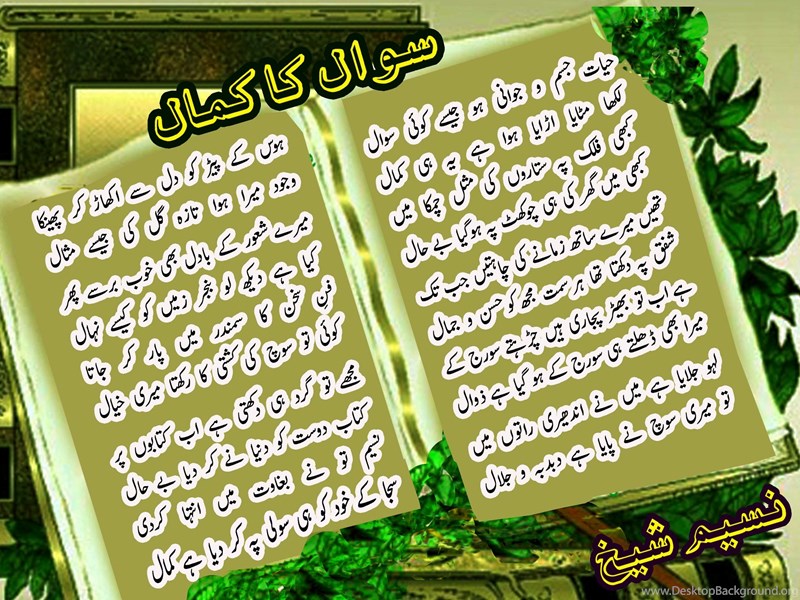 سوال کا کمال
حیات جسم و جوانی ہو جیسے کوئی سوال
لکھا مٹایا اڑایا ہوا ہے یہ ہی کمال
کبھی فلک پہ ستاروں کی مثل چمکا میں
کبھی میں گھر کی ہی چوکھٹ پہ ہوگیا بے حال
تھیں میرے ساتھ زمانے کی چاہتیں جب تک
شفق پہ دکھتا تھا ہر سمت مجھ کو حسن و جمال
ہے اب تو بھیڑ پجاری ہیں چڑھتے سورج کے
میرا بھی ڈھلتے ہی سورج کے ہو گیا ہے ذوال
لہو جلایا ہے میں نے اندھیری راتوں میں
تو میری سوچ نے پایا ہے دبدبہ و جلال
ہوس کے پیڑ کو دل سے اکھاڑ کر پھینکا
وجود میرا ہوا تازہ گل کی جیسے مثال
میرے شعور کے بادل بھی خوب برسے پھر
کیا ہے دیکھ لو بنجر زمیں کو کیسے نہال
فنِ سخن کا سمندر میں پار کر جاتا
کوئی تو سوچ کی کشتی کا رکھتا میری خیال
مجھے تو گرد ہی دکھتی ہے اب کتابوں پر
کتاب دوست کو دنیا نے کر دیا بے حال
نسیم تو نے بغاوت میں انتہا کردی
سجا کے خود کو ہی سولی پہ کر دیا ہے کمال
نسیم شیخ
www.DesktopBackground.org